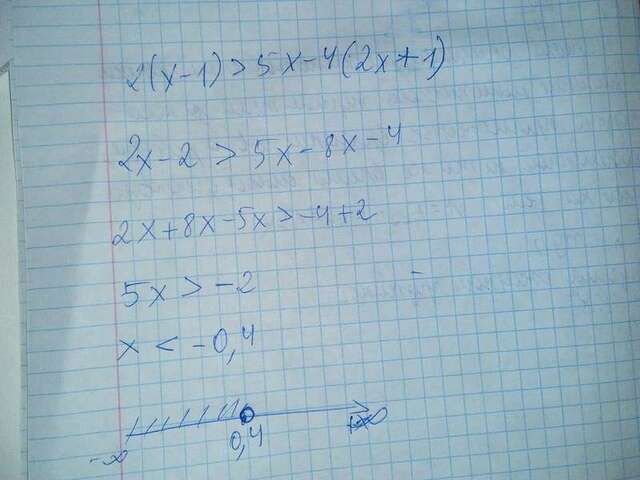 2(x-1)>5x-4(2x+1)
2x-2>5x-8x-4
2x+8x-5x>-4+2
5x>-2
x<-0,4
0,4
-∞ +∞